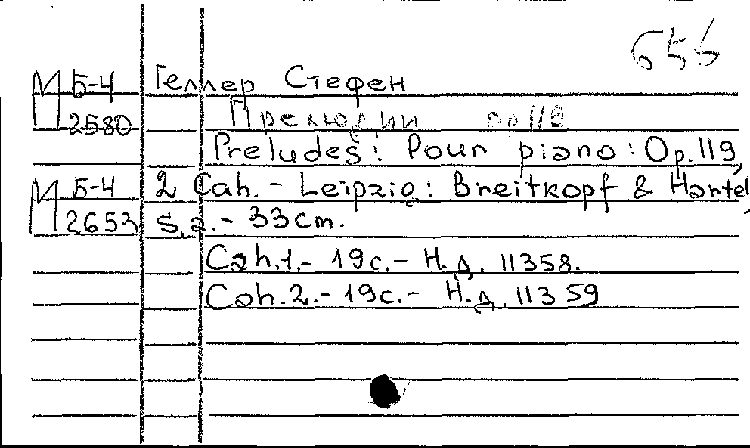 656
М Б-4 Геллер Стефен
2580 Прелюдии ор 119
Preludes: Pour piano: Op.119,
М Б-4 2 Cah. - Leipzig: Breitkopf & Hartel,
2653 S.a. - 33cm.
Cah.1. - 19с. - Н.д. 11358.
Cah.2. - 19с. - Н.д. 11359